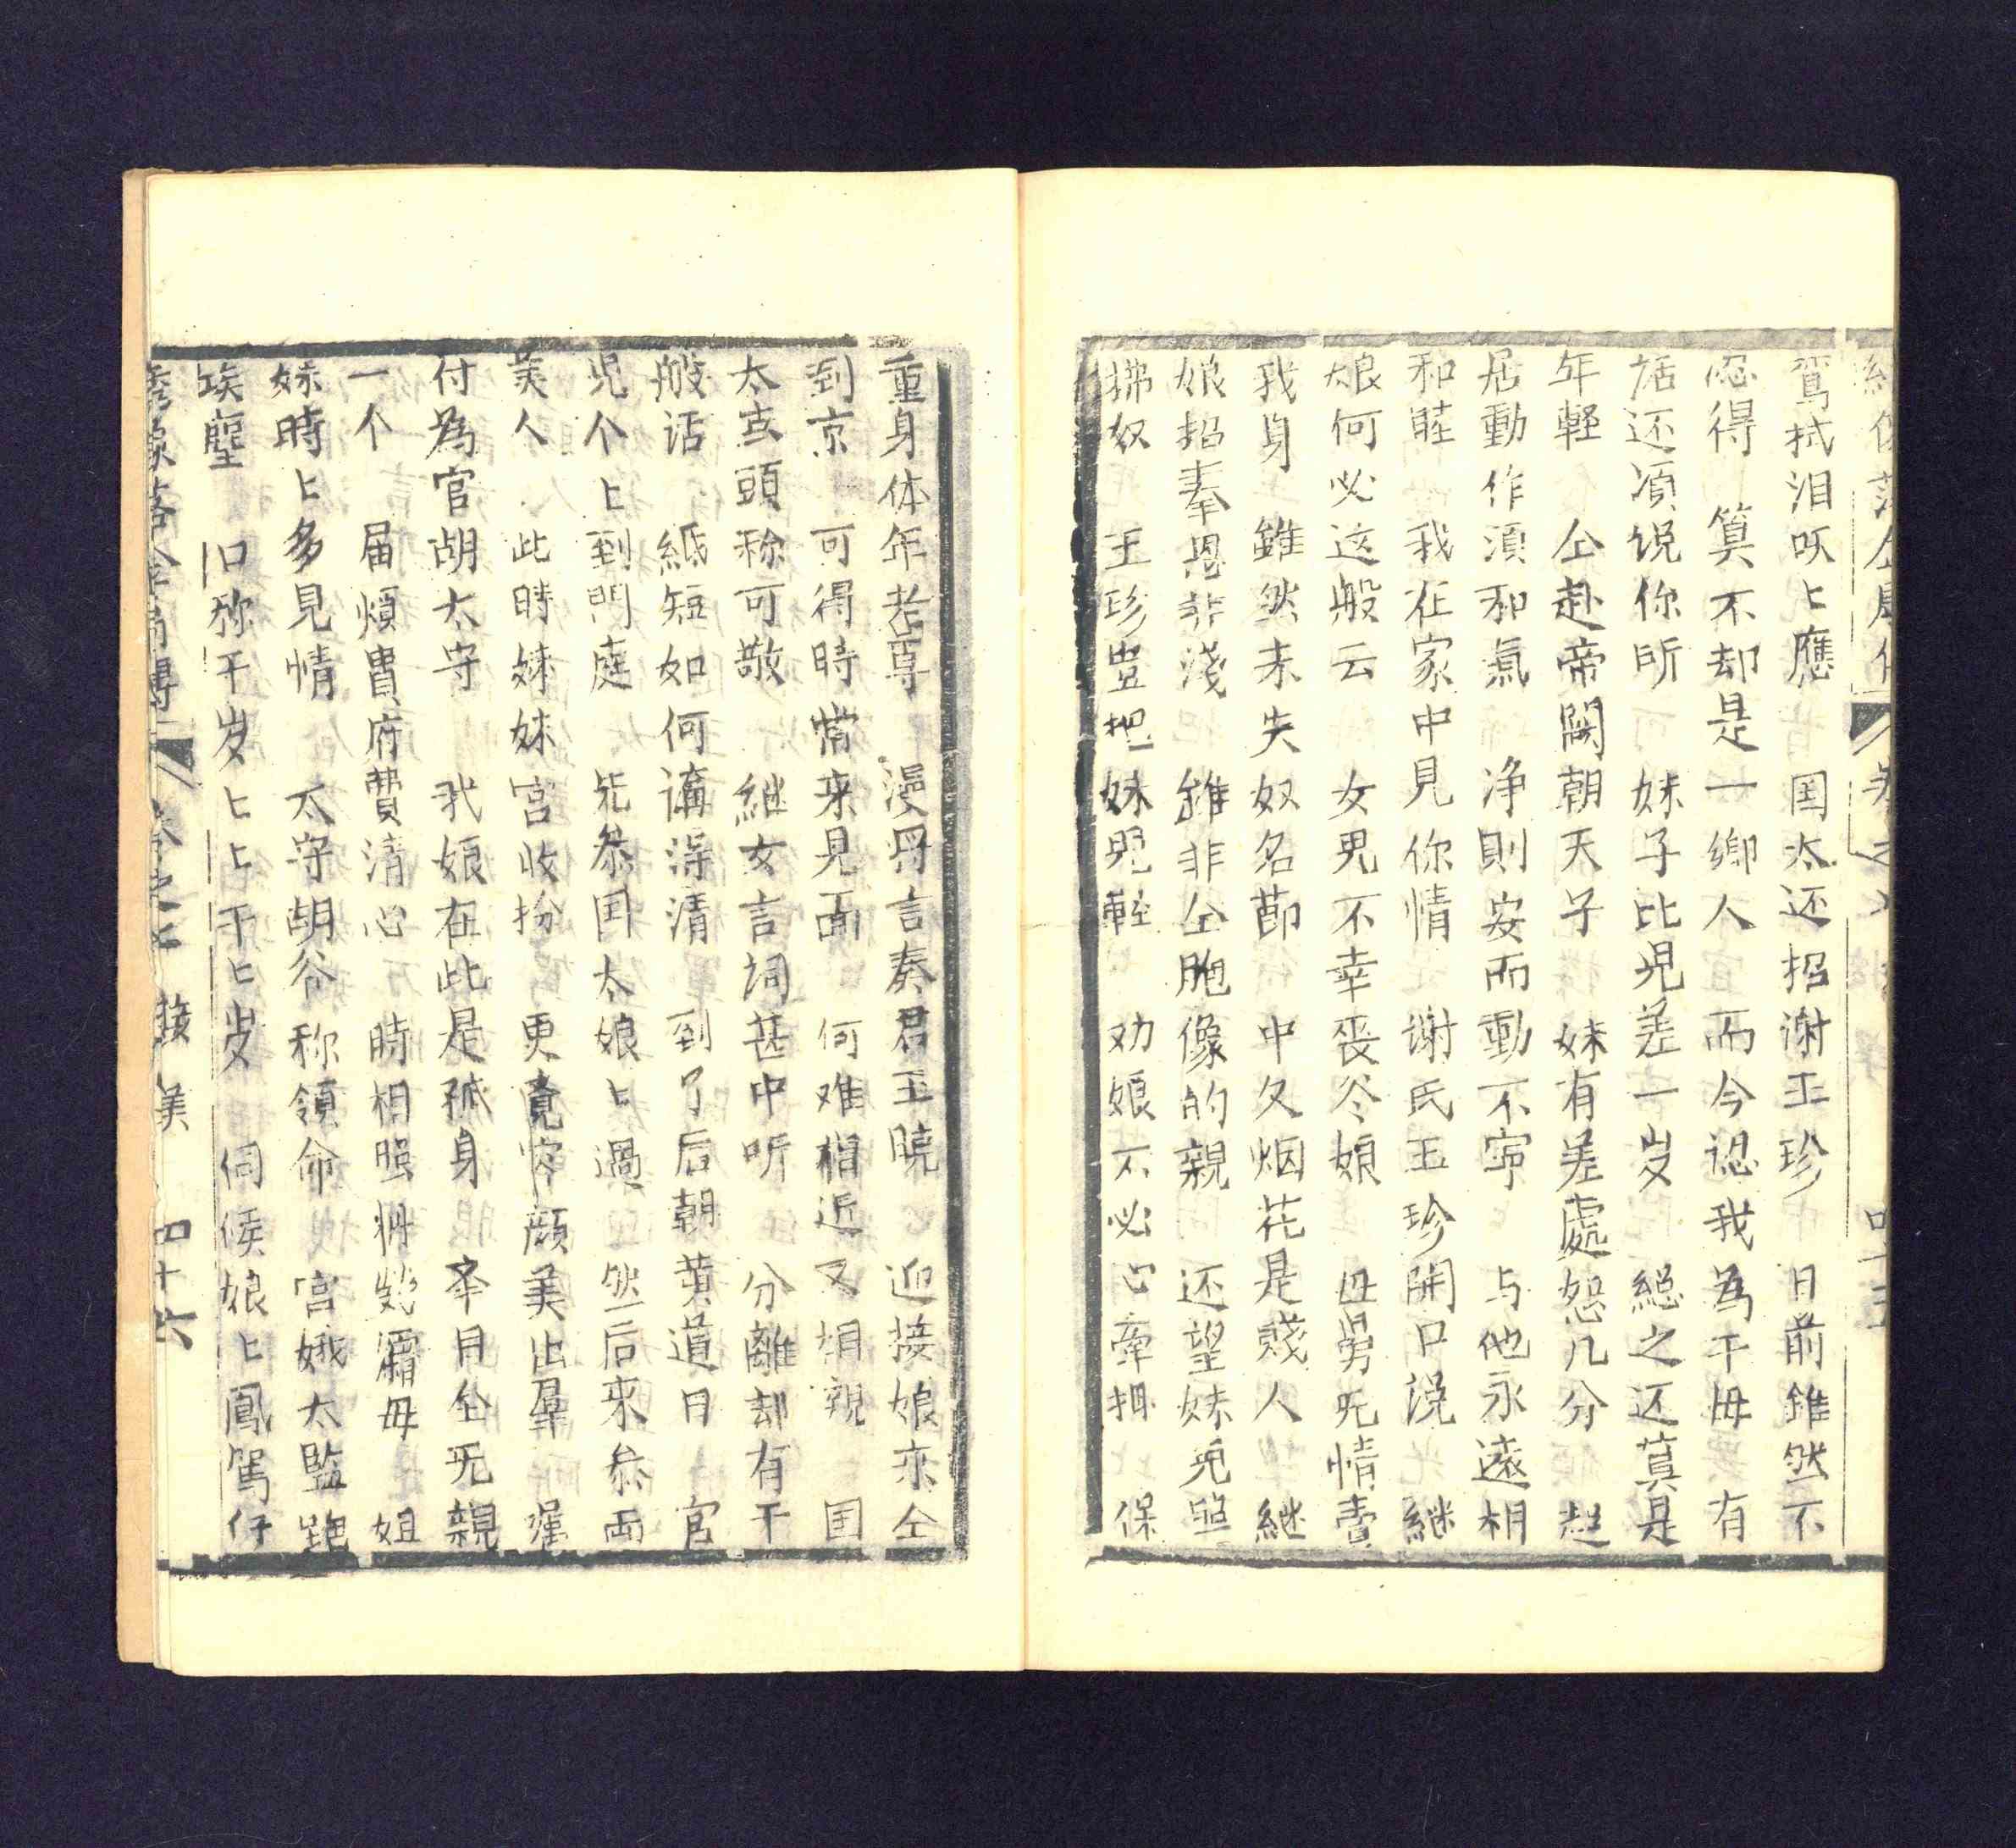 鸞拭泪呌〻應　国太还招谢玉珍　日前雖然不
忍得　算不却是一鄉人　而今認我為干毋　有
話还須说你所　妹子比児差一岁　總之还莫是
年輕　仝赴帝闕朝天子　妹有差處恕几分　起
居動作須和氣　净則安而動不宁　与他永遠相
和睦　我在家中見你情　谢氏玉珍開口说　継
娘何必这般云　女児不幸丧爷娘　毋舅旡情賣
我身　雖然未失奴名節　中久烟花是賤人　継
娘招奉恩非淺　雖非仝胞像的親　还望妹児照
拂奴　玉珍豈把妹児輕　劝娘不必心牽掛　保
重身体年老尊　漫將言奏君王曉　迎接娘來仝
到京　可得時常来見面　何难相近又相親　国
太吉頭称可敬　継女言詞甚中听　分離却有千
般话　紙短如何講得清　到了后朝黄道日　官
児个〻到門庭　先叅国太娘〻過　然后来叅両
美人　此時妹妹宮收扮　更竟容顔美出羣　嘱
付為官胡太守　我娘在此是孤身　举目仝旡親
一个　届煩貴府費清心　時相照料勉霜毋　姐
妹時〻多見情　太守胡爷称領命　宮娥太監跑
埃塵　口称千岁〻〻千〻岁　伺候娘〻鳳駕行
綉像落金扇傳　卷之七　接美　四十六